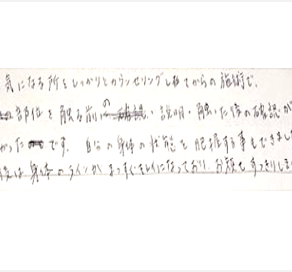 気になる所をしっかりとカウンセリングしてからの施術で、
部位を触る前の説明・触った後の確認が
かったです。自分の身体の状態を把握する事もできました
後は身体のラインがまっすぐキレイになっており、お顔もすっきりしま